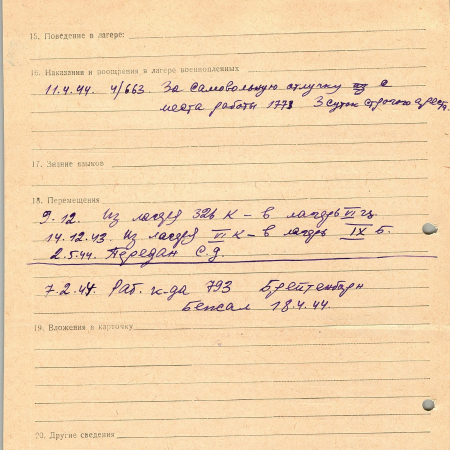 15. Поведение в лагере:
16. Наказания и поощрения в лагере военнопленных
11.4.44. 4/663. За самовольную отлучку с
места работы 1773 3 суток строгого ареста
17. Знание языков
18. Перемещения
9.12. Из лагеря 326 К – в лагерь VI
14.12.43. Из лагеря VI К – в лагерь IX Б.
2.5.44. Передан С.Д.
7.2.44. Раб. к-да 793 Брейтенборн
Бежал 18.4.44.
19. Вложения в карточку
20. Другие сведения